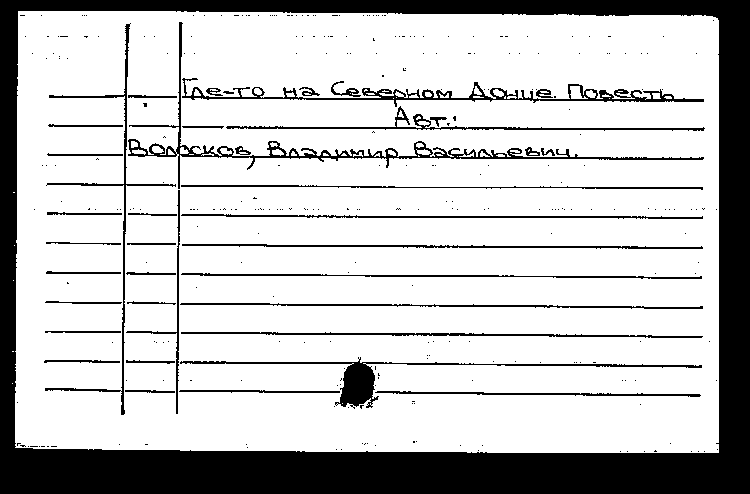 Где-то на Северном Донце. Повесть
Авт.:
Волосков, Владимир Васильевич.